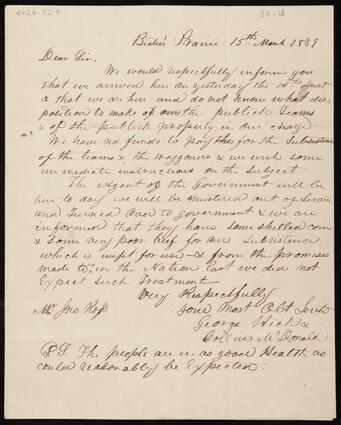 4026.724
39-13
Beatie's Prairie 15th March 1839
Dear Sir,
We would respectfully inform you
that we arrived here on yesterday the 14th Inst
& that we are here and do not know what dis-
position to make of the publick Teams
& of the publick property in our charge
We have no funds to pay for the Subsistence
of the teams & the waggoners & we wish some
immediate instructions on the Subject.
The agent of the Government will be
here to day we will be mustered out of Service
and Turned Over to government & we are
informed that they have Some shelled corn
& Some very poor beef for our Subsistence
which is unfit for use & from the promises
made to us in the Nation last we did not
Expect Such Treatment
Very Respectfully
your Most Obt Servts
Mr. Jno Ross
George Hicks
Collins McDonald
P.S. The people are in as good Health as
could reasonably be Expected.